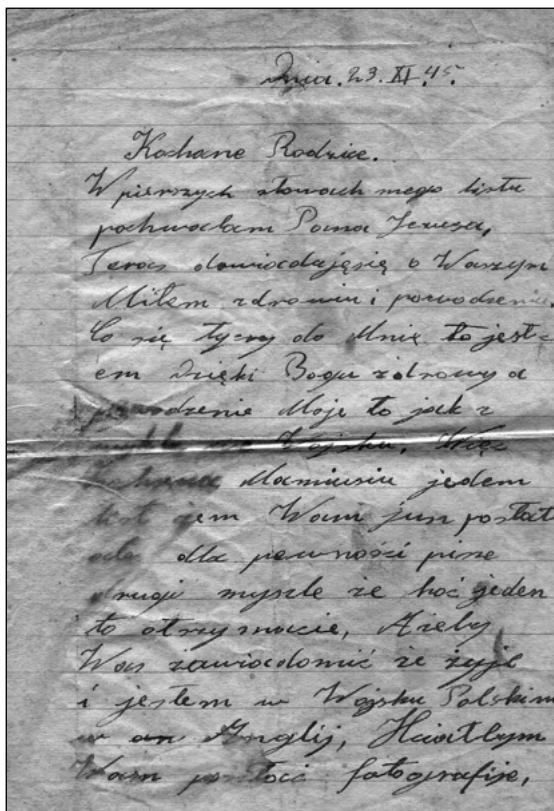 Dnia. 23. XI. 45.
Kochane Rodzice.
W pierszych słowach mego listu
pochwalam Pana Jezusa,
Teras dowiadajęsię o Waszym
Miłem zdrowiu i powodzeniu
Co się tyczy do Mnię to jest-
em Dzięki Bogu zdrowy a
powodzenie Moje to jak z
Wojsku, Więc
Kochana Mamusiu jeden
list jem Wam jusz posłał
ale dla pewności pisze
drugi myszle że hoć jeden
to otrzymacie, Ażeby
Was zawiadomić że żyje
i jestem w Wojsku Polskim
w Anglij, Hciałbym
Wam posłać fotografije,